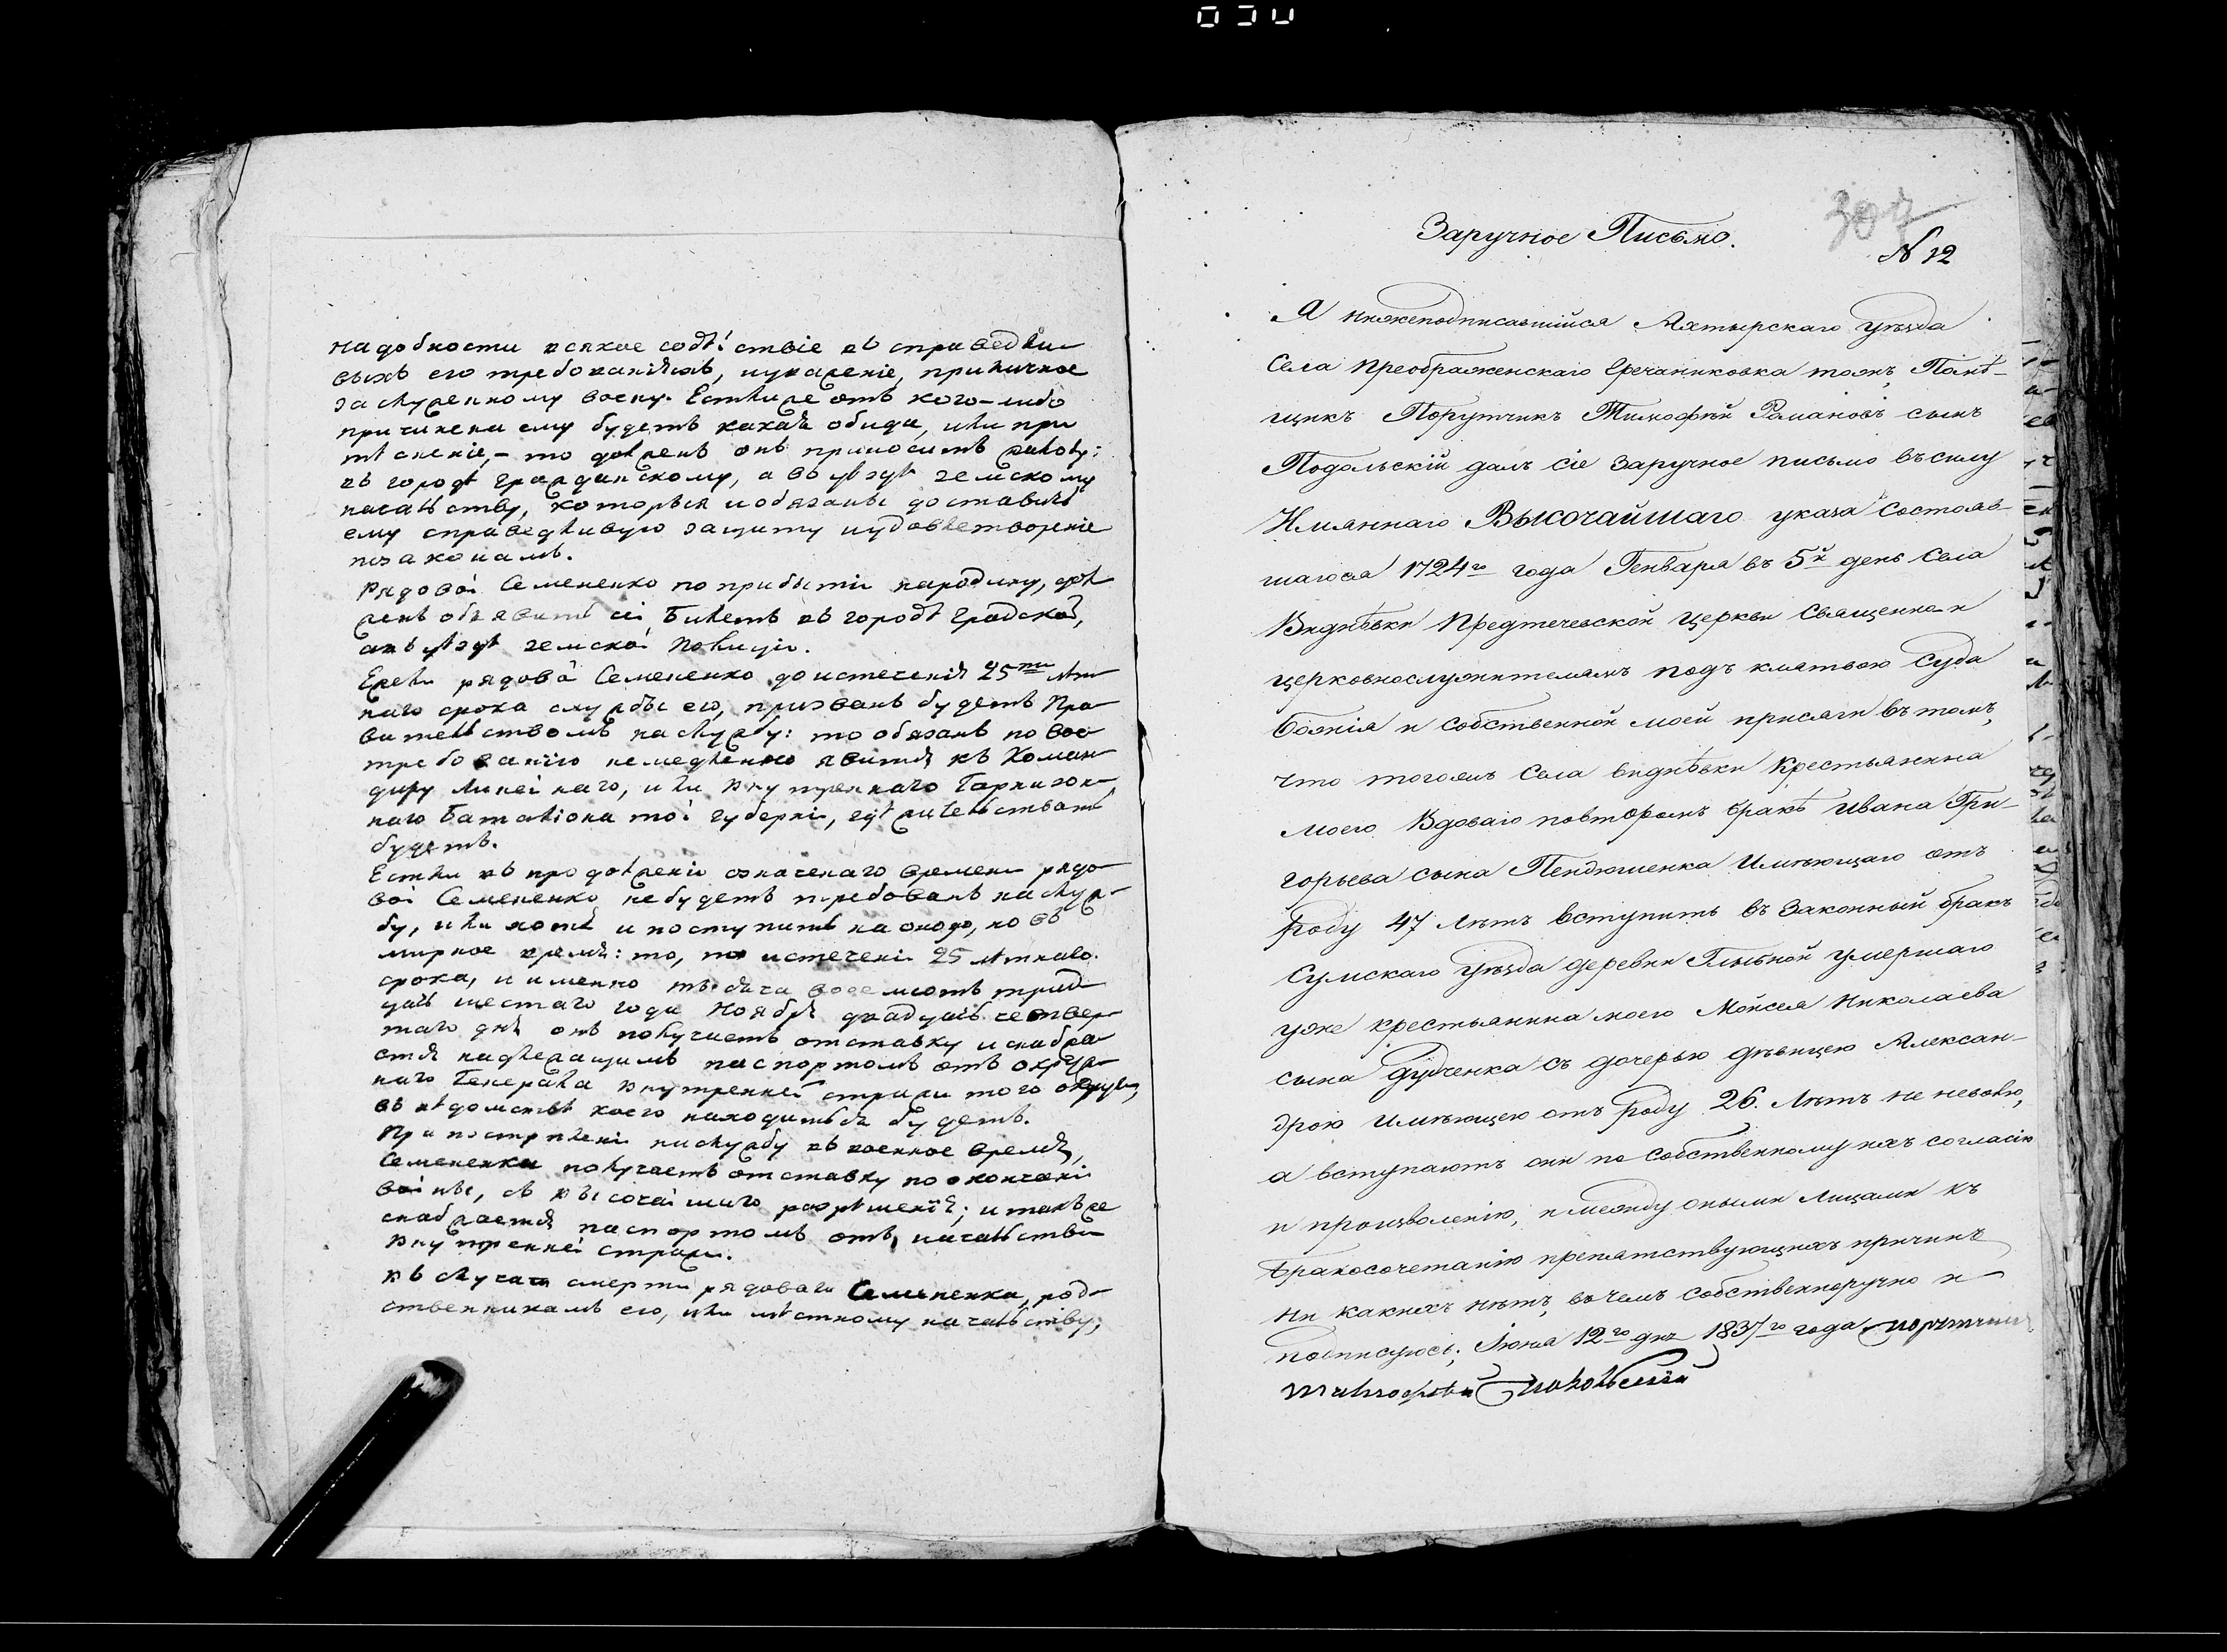 надобности всякое содѣйствіе въ справедли-
выхъ его требованіяхъ, и уваженіе, приличное
заслуженному воену. Естьли же отъ кого-либо
причинена ему будетъ какая обида, или при
тѣсненіе,- то долженъ онъ приносить жалобу:
въ городѣ гражданскому, а въ уѣздѣ земскому
начальству, которыя и обязаны доставить
ему справедливую защиту и удовлетвореніе
позаконамъ.
Рядовой Семененко по прибытіи народину, дол
женъ объявить сей Билетъ въ городѣ градской,
а въ уѣздѣ земской Полиціи.
Ежели рядовой Семененко до истеченія 25ти лѣт
наго срока службы его, призванъ будетъ Пра-
вительствомъ на службу: то обязанъ по вос
требованію немедленно явится къ Коман-
диру Линейнаго, или внутренняго Гарнизон-
наго Баталіона той губерніи, гдѣ жительствовать
будетъ.
Естьли въ продолженіи означенаго времени рядо-
вой Семененко небудетъ требованъ на служ-
бу, или хотя и поступитъ на оную, но въ
мирное время: то, по истеченіи 25 лѣтняго.
срока, и именно тысяча восемьсотъ трид-
цать шестаго года Ноября двадцать четвер-
таго дня онъ получаетъ отставку и снабжа-
ется надлежащимъ паспортомъ отъ окруж-
наго Генерала внутренней стражи того округа,
въ вѣдомствѣ коего находиться будетъ.
При поступленіи на службу въ военное время,
Семененко получаетъ отставку по окончаніи
войны, съ высочайшаго разрѣшенія; и также
снабжается паспортомъ отъ, начальства
внутренней стражи.
въ случаѣ смерти рядоваго Семененка, род-
ственникамъ его, или мѣстному начальству,
307
Заручное Письмо.
N 12
Я нижеподписавшійся Ахтырскаго уѣзда
Села Преображенскаго Гречаниковка тожъ, Помѣ-
щикъ Порутчикъ Тимофѣй Романовъ сынъ
Подольскій далъ сіе заручное письмо въ силу
Имяннаго Высочайшаго указа состояв-
шагося 1724го года Генваря въ 5й день села
Виднѣвки Предтечевской церкви Священно и
церковнослужителямъ подъ клятвою суда
божія и собственной моей присяги въ томъ,
что тогожъ Села виднѣвки Крестьянина
моего Вдоваго повторомъ бракѣ ивана Гри-
горьева сына Пендюшенка Имѣющаго отъ
роду 47 лѣтъ вступить въ Законный бракъ
Сумскаго уѣзда деревни Глыбной умершаго
уже крестьянина моего Мойсея Николаева
сына Дудченка съ дочерью дѣвицею Алексан-
дрою имѣющею отъ роду 26. лѣтъ не неволю,
а вступаютъ они по собственному ихъ согласію
и произволенію, и между оными лицами къ
бракосочетанію препятствующихъ причинъ
ни какихъ нѣтъ, въ чемъ собственноручно и
подписуюсь; Іюня 12го дня 1837го года порутчик
тимофѣй подольскій